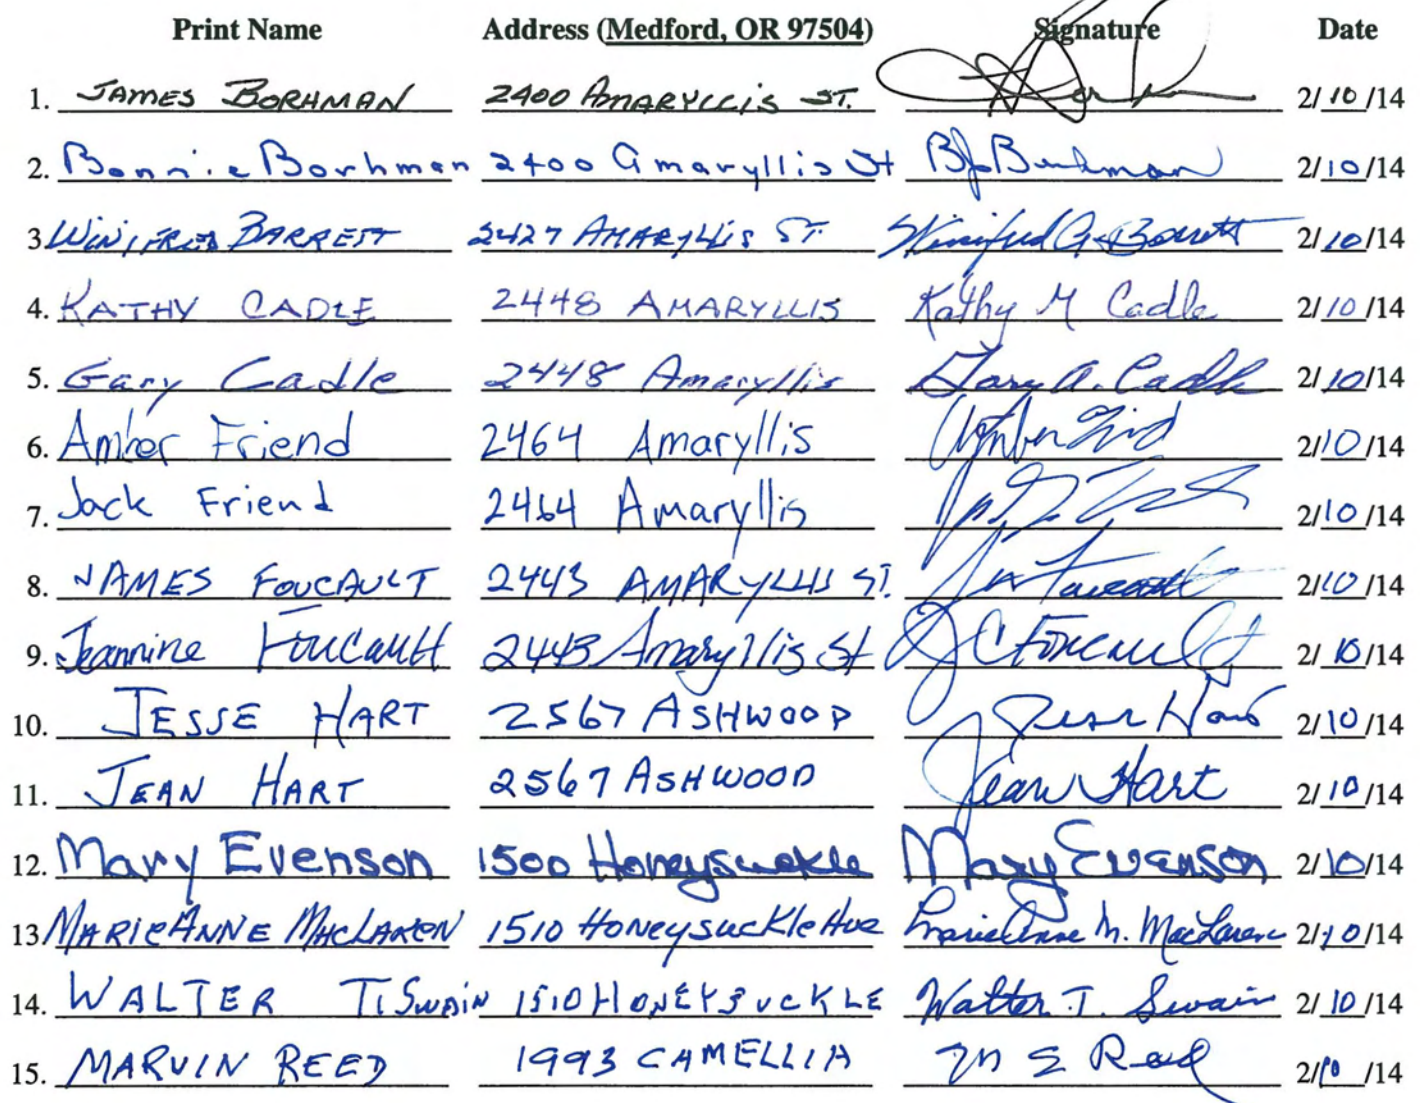 Print Name Address (Medford, OR 97504) Signature Date
1. JAMES BORHMAN 2400 AMARYLLIS ST. 2/10/14
2. Bonnie Borhman 2400 Amaryllis St BJ Borhman 2/10/14
3. WINIFRED BARRETT 2427 AMARYLLIS ST. Winifred G. Barrett 2/10/14
4. KATHY CADLE 2448 AMARYLLIS Kathy M Cadle 2/10/14
5. Gary Cadle 2448 Amaryllis Gary A. Cadle 2/10/14
6. Amber Friend 2464 Amaryllis Amber Friend 2/10/14
7. Jack Friend 2464 Amaryllis 2/10/14
8. JAMES FOUCAULT 2443 AMARYLLIS ST. Foucault 2/10/14
9. Jeannine Foucault 2443 Amaryllis St J C Foucault 2/10/14
10. JESSE HART 2567 ASHWOOD Jesse Hart 2/10/14
11. JEAN HART 2567 ASHWOOD Jean Hart 2/10/14
12. Mary Evenson 1500 Honeysuckle Mary Evenson 2/10/14
13. MARIEANNE MACLAREN 1510 Honeysuckle Ave MarieAnne M. MacLaren 2/10/14
14. WALTER T. SWAIN 1510 HONEYSUCKLE Walter T. Swain 2/10/14
15. MARVIN REED 1993 CAMELLIA M E Reed 2/10/14